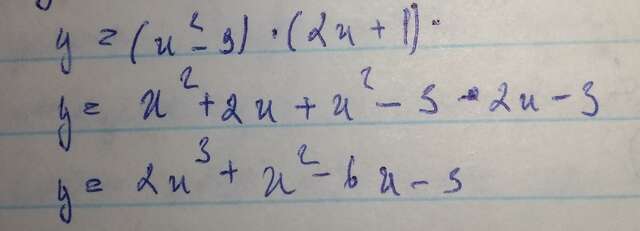 y = (x² - 3) · (2x + 1).
y = x² + 2x + x² - 3 · 2x - 3
y = 2x³ + x² - 6x - 3